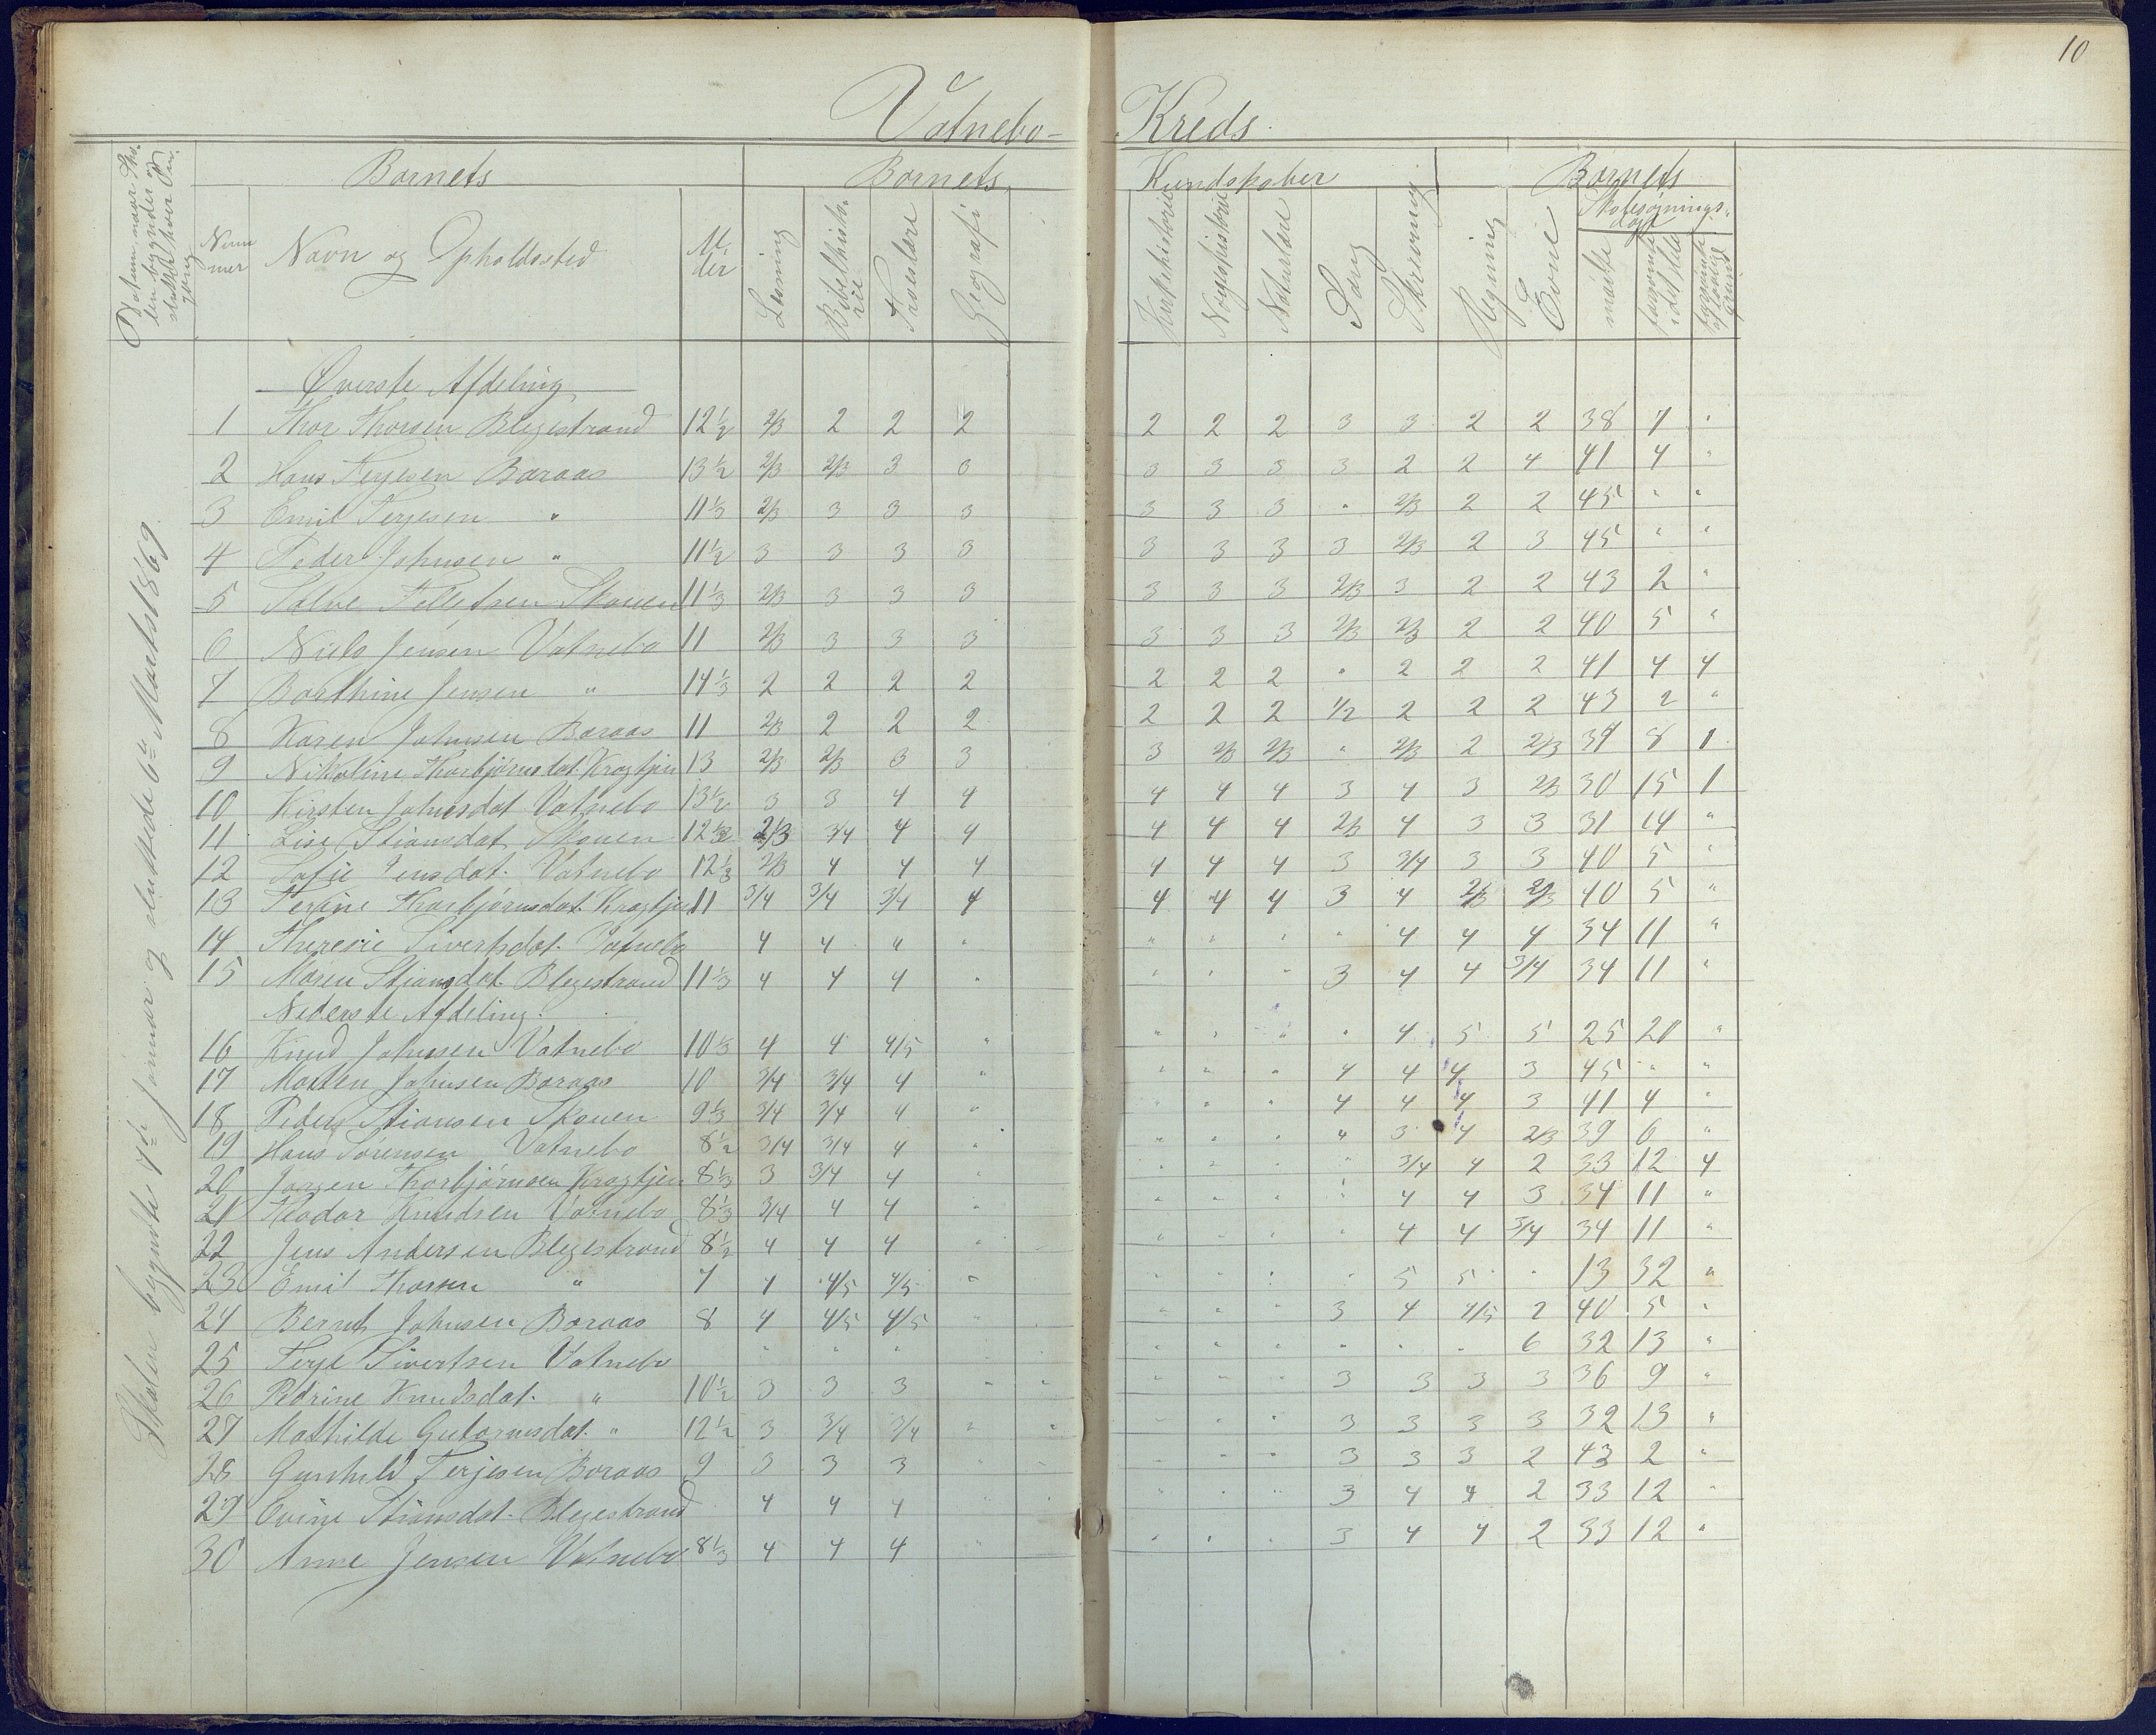 10
Vatnebo- Kreds.
Datum, naar Skolen begynder og slutter hver Omgang
Barnets
Barnets
Kundskaber
Barnets
Skolesøgningsdage
Nummer
Navn og Opholdssted
Alder
Læsning
Bibelhistorie
Troeslære
Geografi
Kirkehistorie
Norgeshistorie
Naturlære
Sang
Skrivning
Regning
Evne
mødte
forsømte i det Hele
forsømte af lovlig Grund
Skolen begyndte 7de Januar og sluttede 6te Marts 1869.
Øverste Afdeling
1 Thor Thorsen Blegestrand 12½ 2/3 2 2 2 2 2 2 3 3 2 2 38 7 "
2 Hans Terjesen Baraas 13½ 2/3 2/3 3 3 3 3 3 3 2 2 4 41 4 "
3 Emil Terjesen " 11⅓ 2/3 3 3 3 3 3 3 " 2/3 2 2 45 " "
4 Peder Johnsen " 11½ 3 3 3 3 3 3 3 3 2/3 2 3 45 " "
5 Salve Tellefsen Skouen 11⅓ 2/3 3 3 3 3 3 3 2/3 3 2 2 43 2 "
6 Niels Jensen Vatnebo 11 2/3 3 3 3 3 3 3 2/3 2/3 2 2 40 5 "
7 Barthine Jensen " 14⅓ 2 2 2 2 2 2 2 " 2 2 2 41 4 4
8 Karen Johnsen Baraas 11 2/3 2 2 2 2 2 2 1/2 2 2 2 43 2 "
9 Nikoline Thorbjørnsdat. Kragtjen 13 2/3 2/3 3 3 3 2/3 2/3 " 2/3 2 2/3 39 8 1
10 Kirsten Johnsdat Vatnebo 13½ 3 3 4 4 4 4 4 3 4 3 2/3 30 15 1
11 Lise Stiansdat. Skouen 12½ 2/3 3/4 4 4 4 4 4 2/3 4 3 3 31 14 "
12 Sofie Jensdat. Vatnebo 12⅓ 2/3 4 4 4 4 4 4 3 3/4 3 3 40 5 "
13 Terine Thorbjørnsdat. Kragtjen 11 3/4 3/4 3/4 4 4 4 4 3 4 2/3 2/3 40 5 "
14 Theresie Sivertsdat. Vatnebo 4 4 " " " " " " 4 4 4 34 11 "
15 Maren Stiansdat. Blegestrand 11⅓ 4 4 4 " " " " 3 4 4 3/4 34 11 "
Nederste Afdeling.
16 Knud Johnsen Vatnebo 10⅓ 4 4 4/5 " " " " " 4 5 5 25 20 "
17 Morten Johnsen Baraas 10 3/4 3/4 4 " " " " 4 4 4 3 45 " "
18 Peder Stiansen Skouen 9⅓ 3/4 3/4 4 " " " " 4 4 4 3 41 4 "
19 Hans Sørensen Vatnebo 8½ 3/4 3/4 4 " " " " " 3 4 2/3 39 6 "
20 Jørgen Thorbjørnsen Kragtjen 8⅓ 3 3/4 4 " " " " " 3/4 4 2 33 12 4
21 Theodor Knudsen Vatnebo 8⅓ 3/4 4 4 " " " " " 4 4 3 34 11 "
22 Jens Andersen Blegestrand 8½ 4 4 4 " " " " " 4 4 3/4 34 11 "
23 Emil Thorsen " 7 4 4/5 4/5 " " " " " 5 5 " 13 32 "
24 Bernt Johnsen Baraas 8 4 4/5 4/5 " " " " 3 4 4/5 2 40 5 "
25 Terje Sivertsen Vatnebo " " " " " " " " " " 6 32 13 "
26 Pedrine Knudsdat. " 10½ 3 3 3 " " " " 3 3 3 3 36 9 "
27 Mathilde Gutormsdat. " 12½ 3 3/4 3/4 " " " " 3 3 3 3 32 13 "
28 Gunhild Terjesen Baraas 9 3 3 3 " " " " 3 3 3 2 43 2 "
29 Stiansdat. Blegestrand 4 4 4 " " " " 3 4 4 2 33 12 "
30 Anne Jensen Vatnebo 8⅓ 4 4 4 " " " " 3 4 4 2 33 12 "